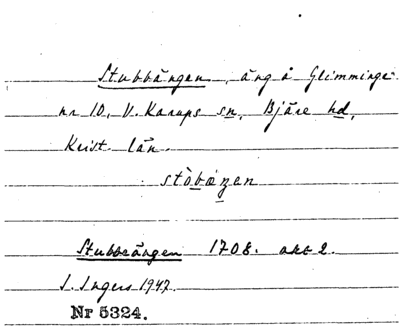 Stubbängen, äng å Glimminge
nr 10, V. Karups sn, Bjäre hd,
Krist. län.
stòbæŋen
Stubbeängen 1708. akt 2.
I. Ingers 1947.
Nr 5324.